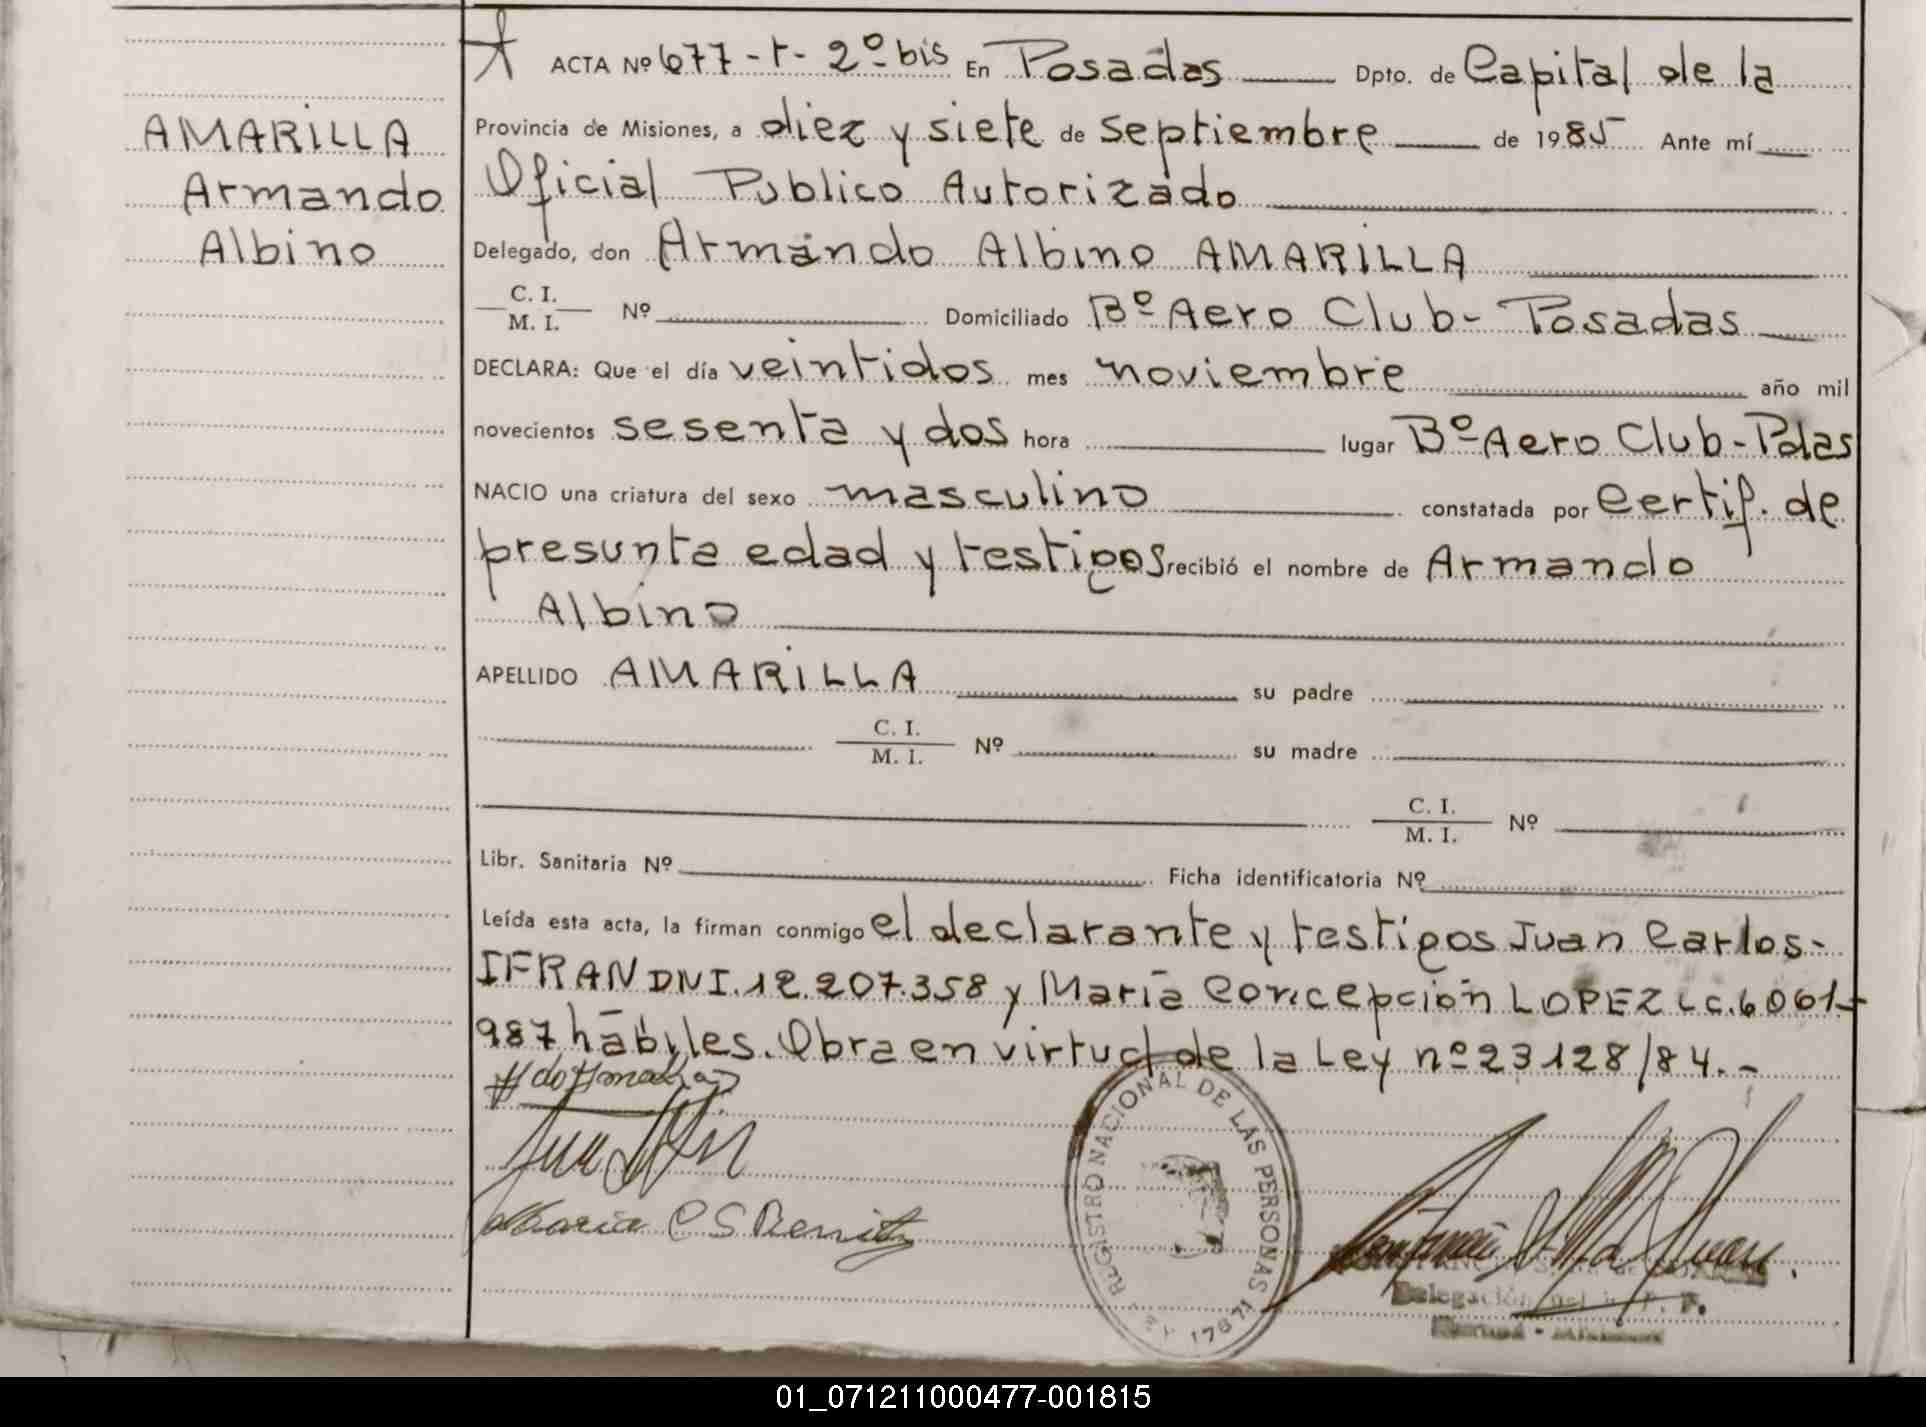 AMARILLA
Armando
Albino
ACTA Nº 677-t-2º bis En Posadas Dpto. de Capital de la
Provincia de Misiones, a diez y siete de septiembre de 1985 Ante mí
Oficial Publico Autorizado
Delegado, don Armando Albino AMARILLA
C. I.
M. I. Nº Domiciliado Bº Aero Club - Posadas
DECLARA: Que el día veintidos mes noviembre año mil
novecientos sesenta y dos hora lugar Bº Aero Club - Pdas
NACIO una criatura del sexo masculino constatada por Certif. de
presunta edad y testigos recibió el nombre de Armando
Albino
APELLIDO AMARILLA su padre
C. I.
M. I. Nº su madre
C. I.
M. I. Nº
Libr. Sanitaria Nº Ficha identificatoria Nº
Leída esta acta, la firman conmigo el declarante y testigos Juan Carlos-
IFRAN DNI.12.207.358 y María Concepción LOPEZ LC.6061-
987 hábiles. Obra en virtud de la Ley nº 23128/84.-
REGISTRO NACIONAL DE LAS PERSONAS
17671
Delegación
01_071211000477-001815